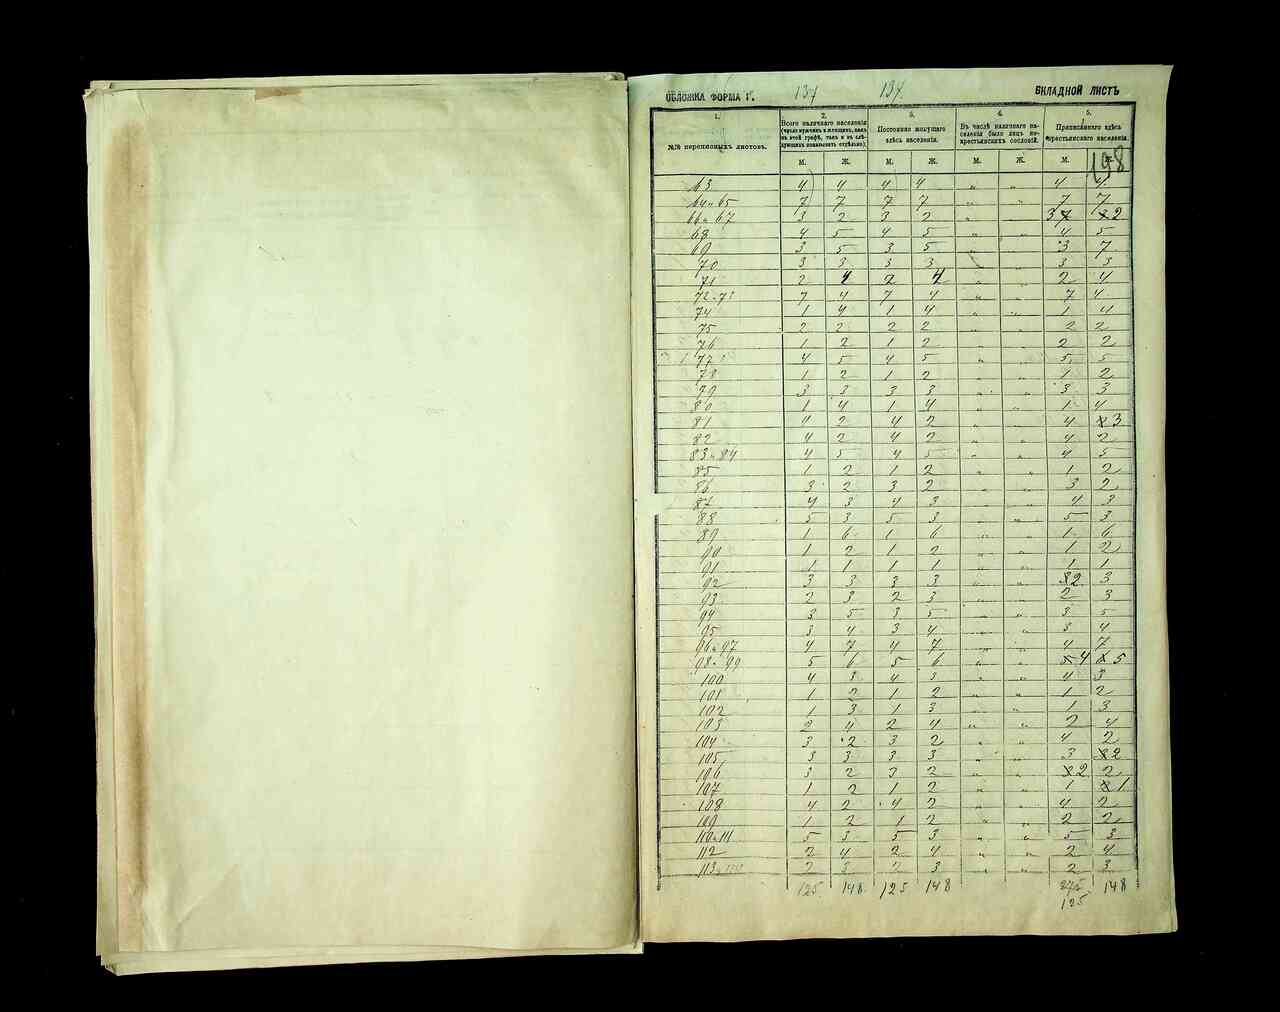 ОБЛОЖКА ФОРМА Г. 137 137. ВКЛАДНОЙ ЛИСТЪ
1. 2. 3. 4. 5.
№№ переписныхъ листовъ. Всего наличнаго населенія (число мужчинъ и женщинъ, какъ въ этой графѣ, такъ и въ слѣдующихъ показывать отдѣльно). Постоянно живущаго здѣсь населенія. Въ числѣ наличнаго населенія было лицъ некрестьянскихъ сословій. Приписаннаго здѣсь крестьянскаго населенія.
М. Ж. М. Ж. М. Ж. М. Ж.
198
63 4 4 4 4 " " 4 4
64 и 65 7 7 7 7 " " 7 7
66 и 67 3 2 3 2 " 3 2
68 4 5 4 5 " " 4 5
69 3 5 3 5 " " 3 7
70 3 3 3 3 " 3 3
71 2 4 2 4 " " 2 4
72 и 73 7 4 7 4 " " 7 4
74 1 4 1 4 " " 1 4
75 2 2 2 2 " " 2 2
76 1 2 1 2 " " 2 2
77 4 5 4 5 " " 5 5
78 1 2 1 2 " " 1 2
79 3 3 3 3 " " 3 3
80 1 4 1 4 " " 1 4
81 4 2 4 2 " " 4 3
82 4 2 4 2 " " 4 2
83 и 84 4 5 4 5 " " 4 5
85 1 2 1 2 " " 1 2
86 3 2 3 2 " " 3 2
87 4 3 4 3 " " 4 3
88 5 3 5 3 " " 5 3
89 1 6 1 6 " " 1 6
90 1 2 1 2 " " 1 2
91 1 1 1 1 " " 1 1
92 3 3 3 3 " " 2 3
93 2 3 2 3 " " 2 3
94 3 5 3 5 " " 3 5
95 3 4 3 4 " " 3 4
96 и 97 4 7 4 7 " " 4 7
98 и 99 5 6 5 6 " " 4 5
100 4 3 4 3 " " 4 3
101 1 2 1 2 " " 1 2
102 1 3 1 3 " " 1 3
103 2 4 2 4 " " 2 4
104 3 2 3 2 " " 4 2
105 3 3 3 3 " " 3 2
106 3 2 3 2 " " 2 2
107 1 2 1 2 " " 1 1
108 4 2 4 2 " " 4 2
109 1 2 1 2 " " 2 2
110 и 111 5 3 5 3 " " 5 3
112 2 4 2 4 " " 2 4
113 2 3 2 3 " " 2 3
125 148 125 148 148
125